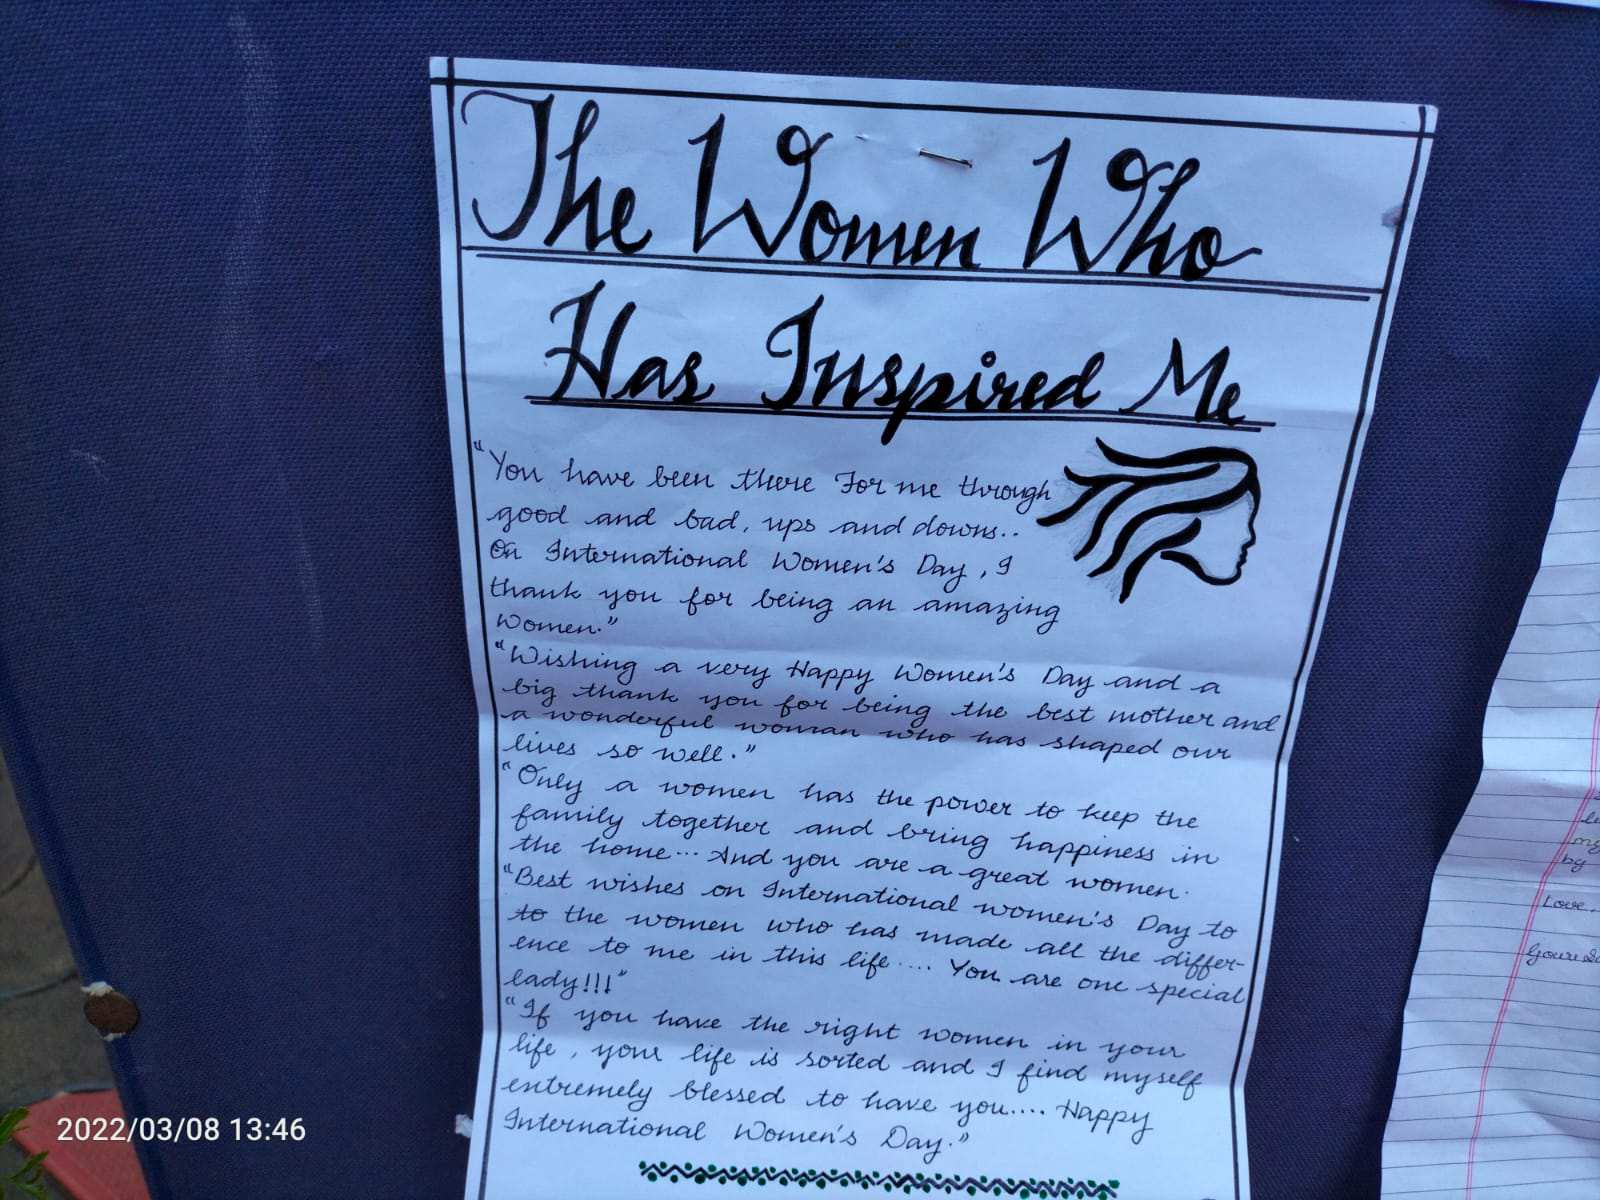 The Women Who
Has Inspired Me
"You have been there For me through
good and bad, ups and downs..
On International Women's Day, I
thank you for being an amazing
Women."
"Wishing a very Happy Women's Day and a
big thank you for being the best mother and
a wonderful woman who has shaped our
lives so well."
"Only a women has the power to keep the
family together and bring happiness in
the home... And you are a great women.
"Best wishes on International women's Day to
to the women who has made all the differ-
ence to me in this life.... You are one special
lady!!!"
"If you have the right women in your
life, your life is sorted and I find myself
extremely blessed to have you.... Happy
International Women's Day."
by
Love,
2022/03/08 13:46